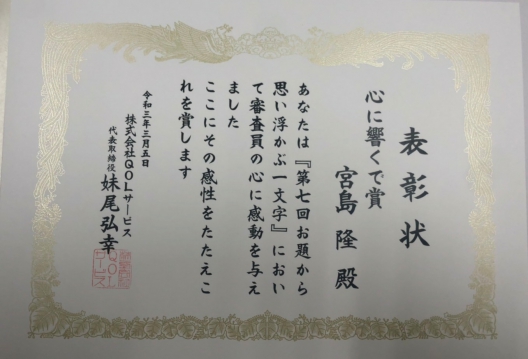 表彰状
心に響くで賞
宮島 隆 殿
あなたは『第七回お題から
思い浮かぶ一文字』におい
て審査員の心に感動を与え
ました
ここにその感性をたたえこ
れを賞します
令和三年三月五日
株式会社QOLサービス
代表取締役 妹尾弘幸